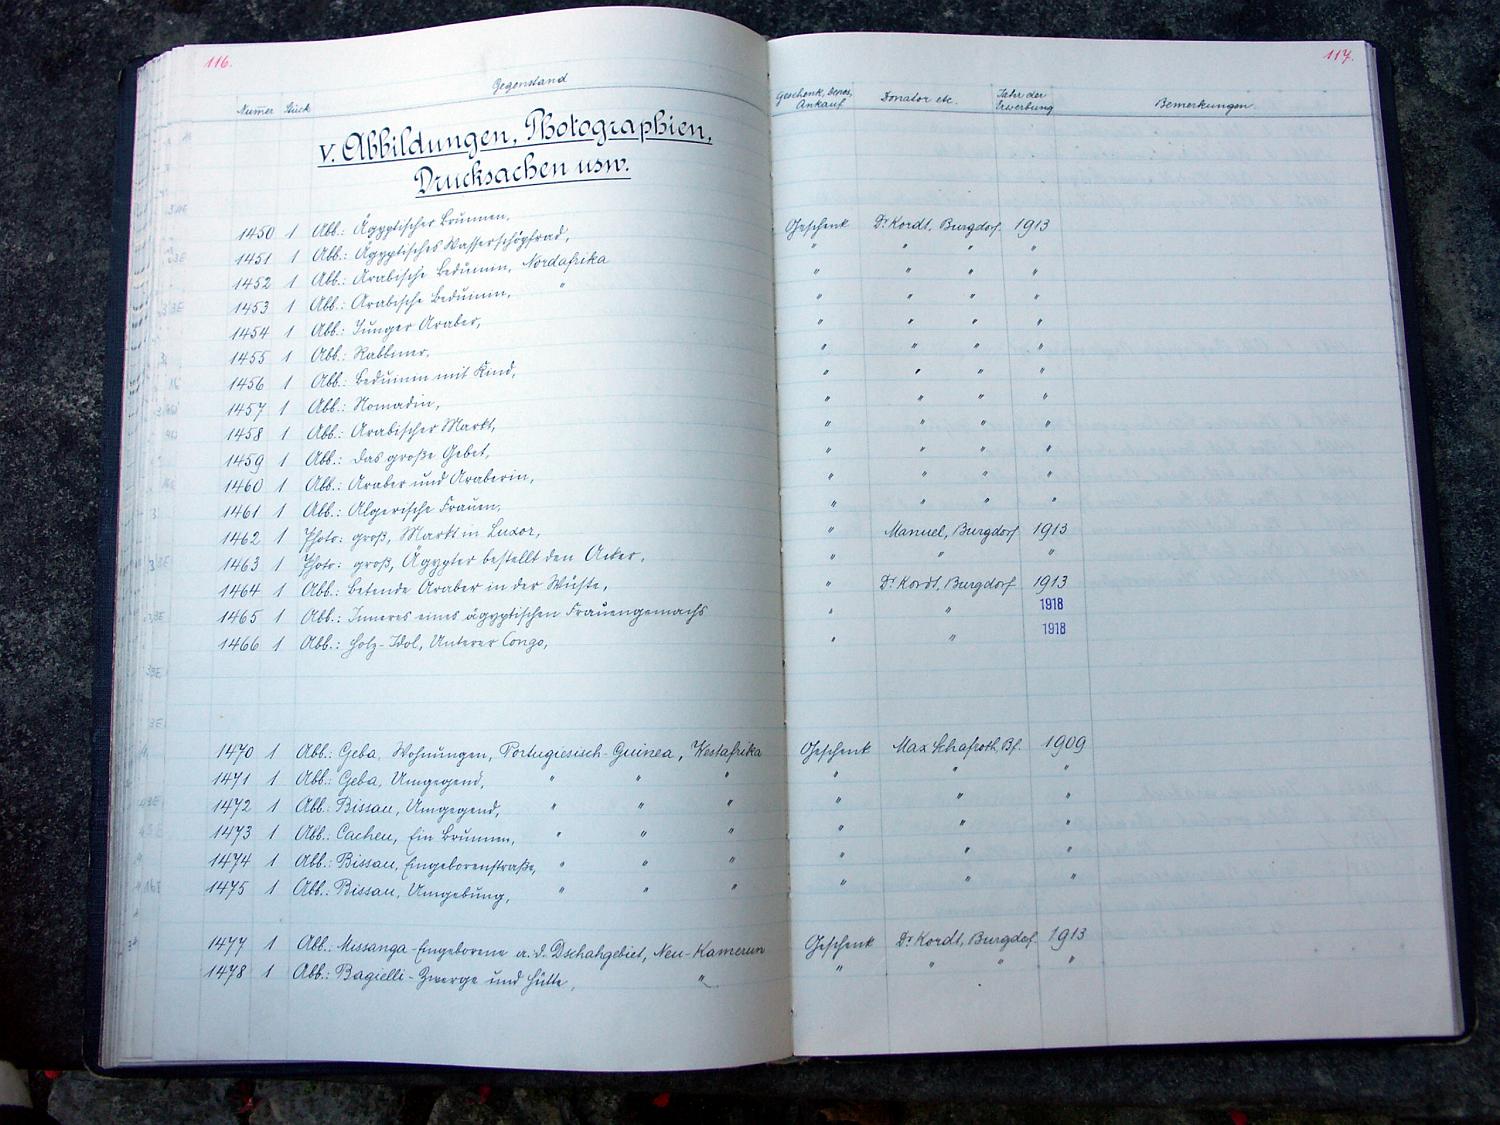 116.
Gegenstand
Numer Stück
V. Abbildungen, Photographien,
Drucksachen usw.
1450 1 Abb.: Ägyptischer Brunnen,
1451 1 Abb.: Ägyptisches Wasserschöpfrad,
1452 1 Abb.: Arabische Beduinin, Nordafrika
1453 1 Abb.: Arabische Beduinin, "
1454 1 Abb.: Junger Araber,
1455 1 Abb.: Rabbiner,
1456 1 Abb.: Beduinin mit Kind,
1457 1 Abb.: Nomadin,
1458 1 Abb.: Arabischer Markt,
1459 1 Abb.: Das große Gebet,
1460 1 Abb.: Araber und Araberin,
1461 1 Abb.: Algerische Frauen,
1462 1 Photo: groß, Markt in Luxor,
1463 1 Photo: groß, Ägypter bestellt den Acker,
1464 1 Abb.: Betende Araber in der Wüste,
1465 1 Abb.: Inneres eines ägyptischen Frauengemachs
1466 1 Abb.: Holz-Idol, Unterer Congo,
1470 1 Abb.: Geba, Wohnungen, Portugiesisch-Guinea, Westafrika
1471 1 Abb.: Geba, Umgegend, " " "
1472 1 Abb.: Bissau, Umgegend, " " "
1473 1 Abb.: Cacheu, Ein Brunnen, " " "
1474 1 Abb.: Bissau, Eingeborenstraße, " " "
1475 1 Abb.: Bissau, Umgebung, " " "
1477 1 Abb.: Missanga-Eingeborene a. d. Dschahgebiet, Neu-Kamerun
1478 1 Abb.: Bagielli-Zwerge und Hütte, "
117.
Geschenk, Ankauf Donator etc. Jahr der Erwerbung Bemerkungen
Geschenk Dr Kordt, Burgdorf 1913
" " " "
" " " "
" " " "
" " " "
" " " "
" " " "
" " " "
" " " "
" " " "
" " " "
" " " "
" Manuel, Burgdorf 1913
" " "
" Dr Kordt, Burgdorf 1913
" " 1918
" " 1918
Geschenk Max Schafroth, Bf. 1909
" " "
" " "
" " "
" " "
" " "
Geschenk Dr Kordt, Burgdof 1913
" " " "